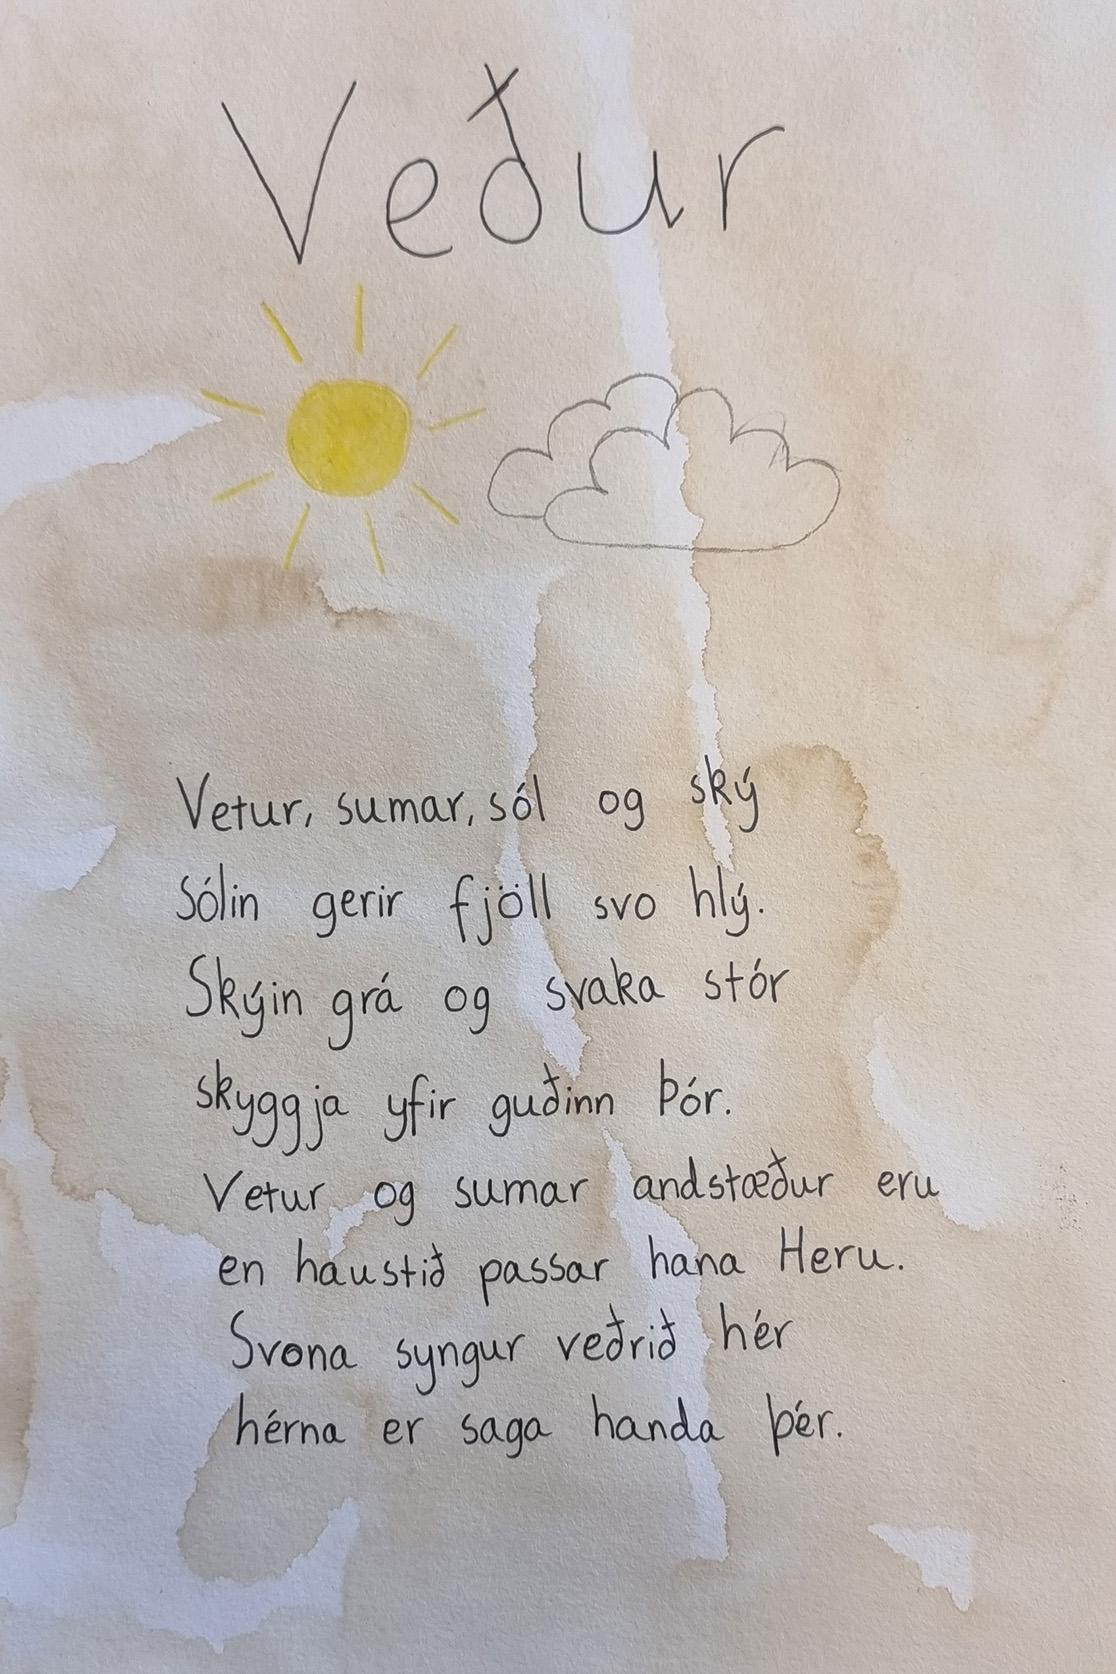 Veður
Vetur, sumar, sól og ský
Sólin gerir fjöll svo hlý.
Skýin grá og svaka stór
skyggja yfir guðinn Þór.
Vetur og sumar andstæður eru
en haustið passar hana Heru.
Svona syngur veðrið hér
hérna er saga handa þér.